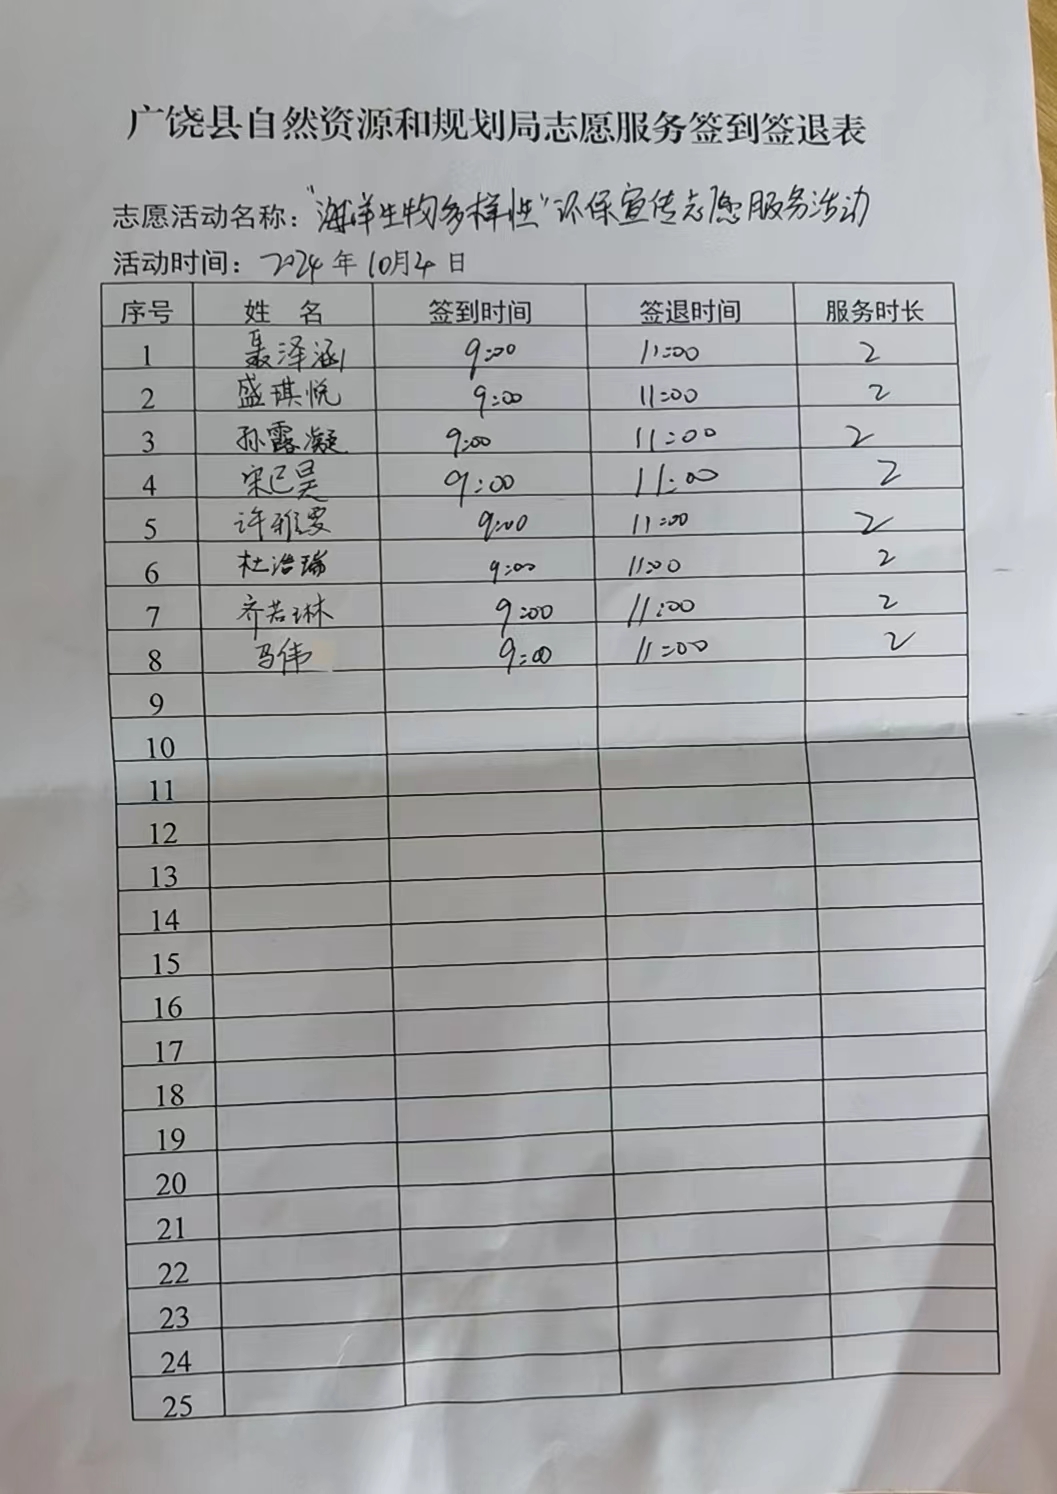 广饶县自然资源和规划局志愿服务签到签退表
志愿活动名称："海洋生物多样性"环保宣传志愿服务活动
活动时间：2024年10月4日
序号 姓 名 签到时间 签退时间 服务时长
1 聂泽涵 9:00 11:00 2
2 盛琪悦 9:00 11:00 2
3 孙露凝 9:00 11:00 2
4 宋已昊 9:00 11:00 2
5 许雅雯 9:00 11:00 2
6 杜浩瑞 9:00 11:00 2
7 齐若琳 9:00 11:00 2
8 马伟 9:00 11:00 2
9
10
11
12
13
14
15
16
17
18
19
20
21
22
23
24
25